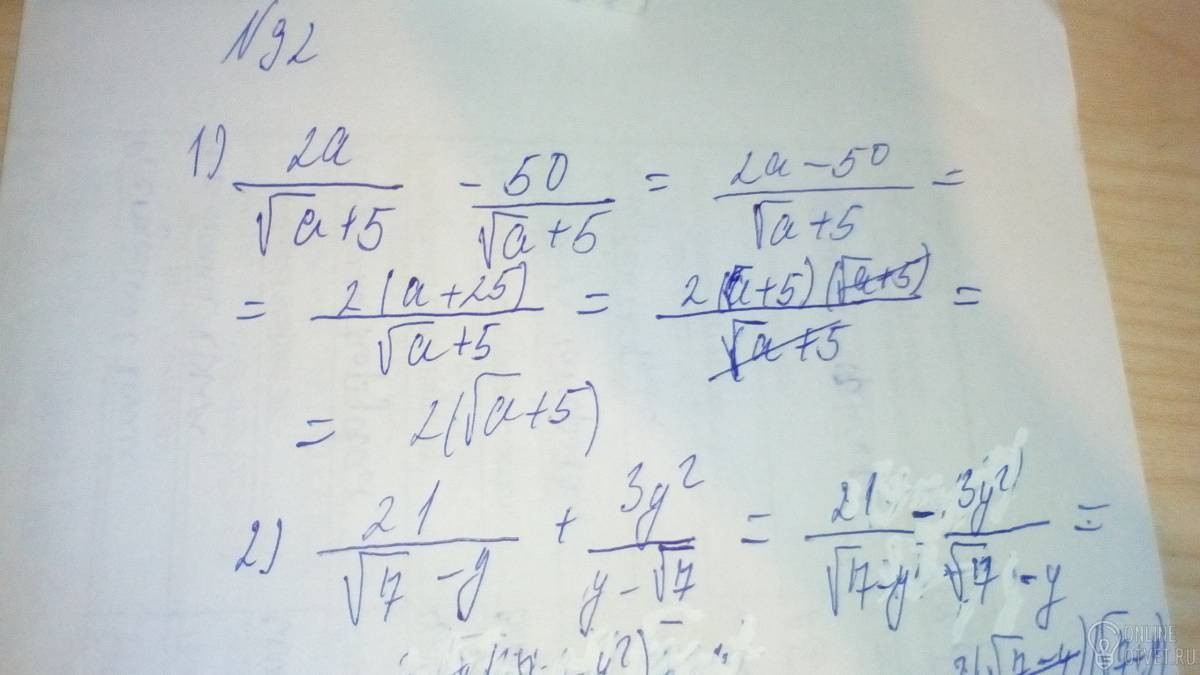 №92
1) 2a/(√a+5) - 50/(√a+5) = (2a-50)/(√a+5) =
= 2(a+25)/(√a+5) = 2(√a+5)(√a+5)/(√a+5) =
= 2(√a+5)
2) 21/(√7-y) + 3y²/(y-√7) = 21/(√7-y) - 3y²/(√7-y) =
ONLINE
OTVET.RU